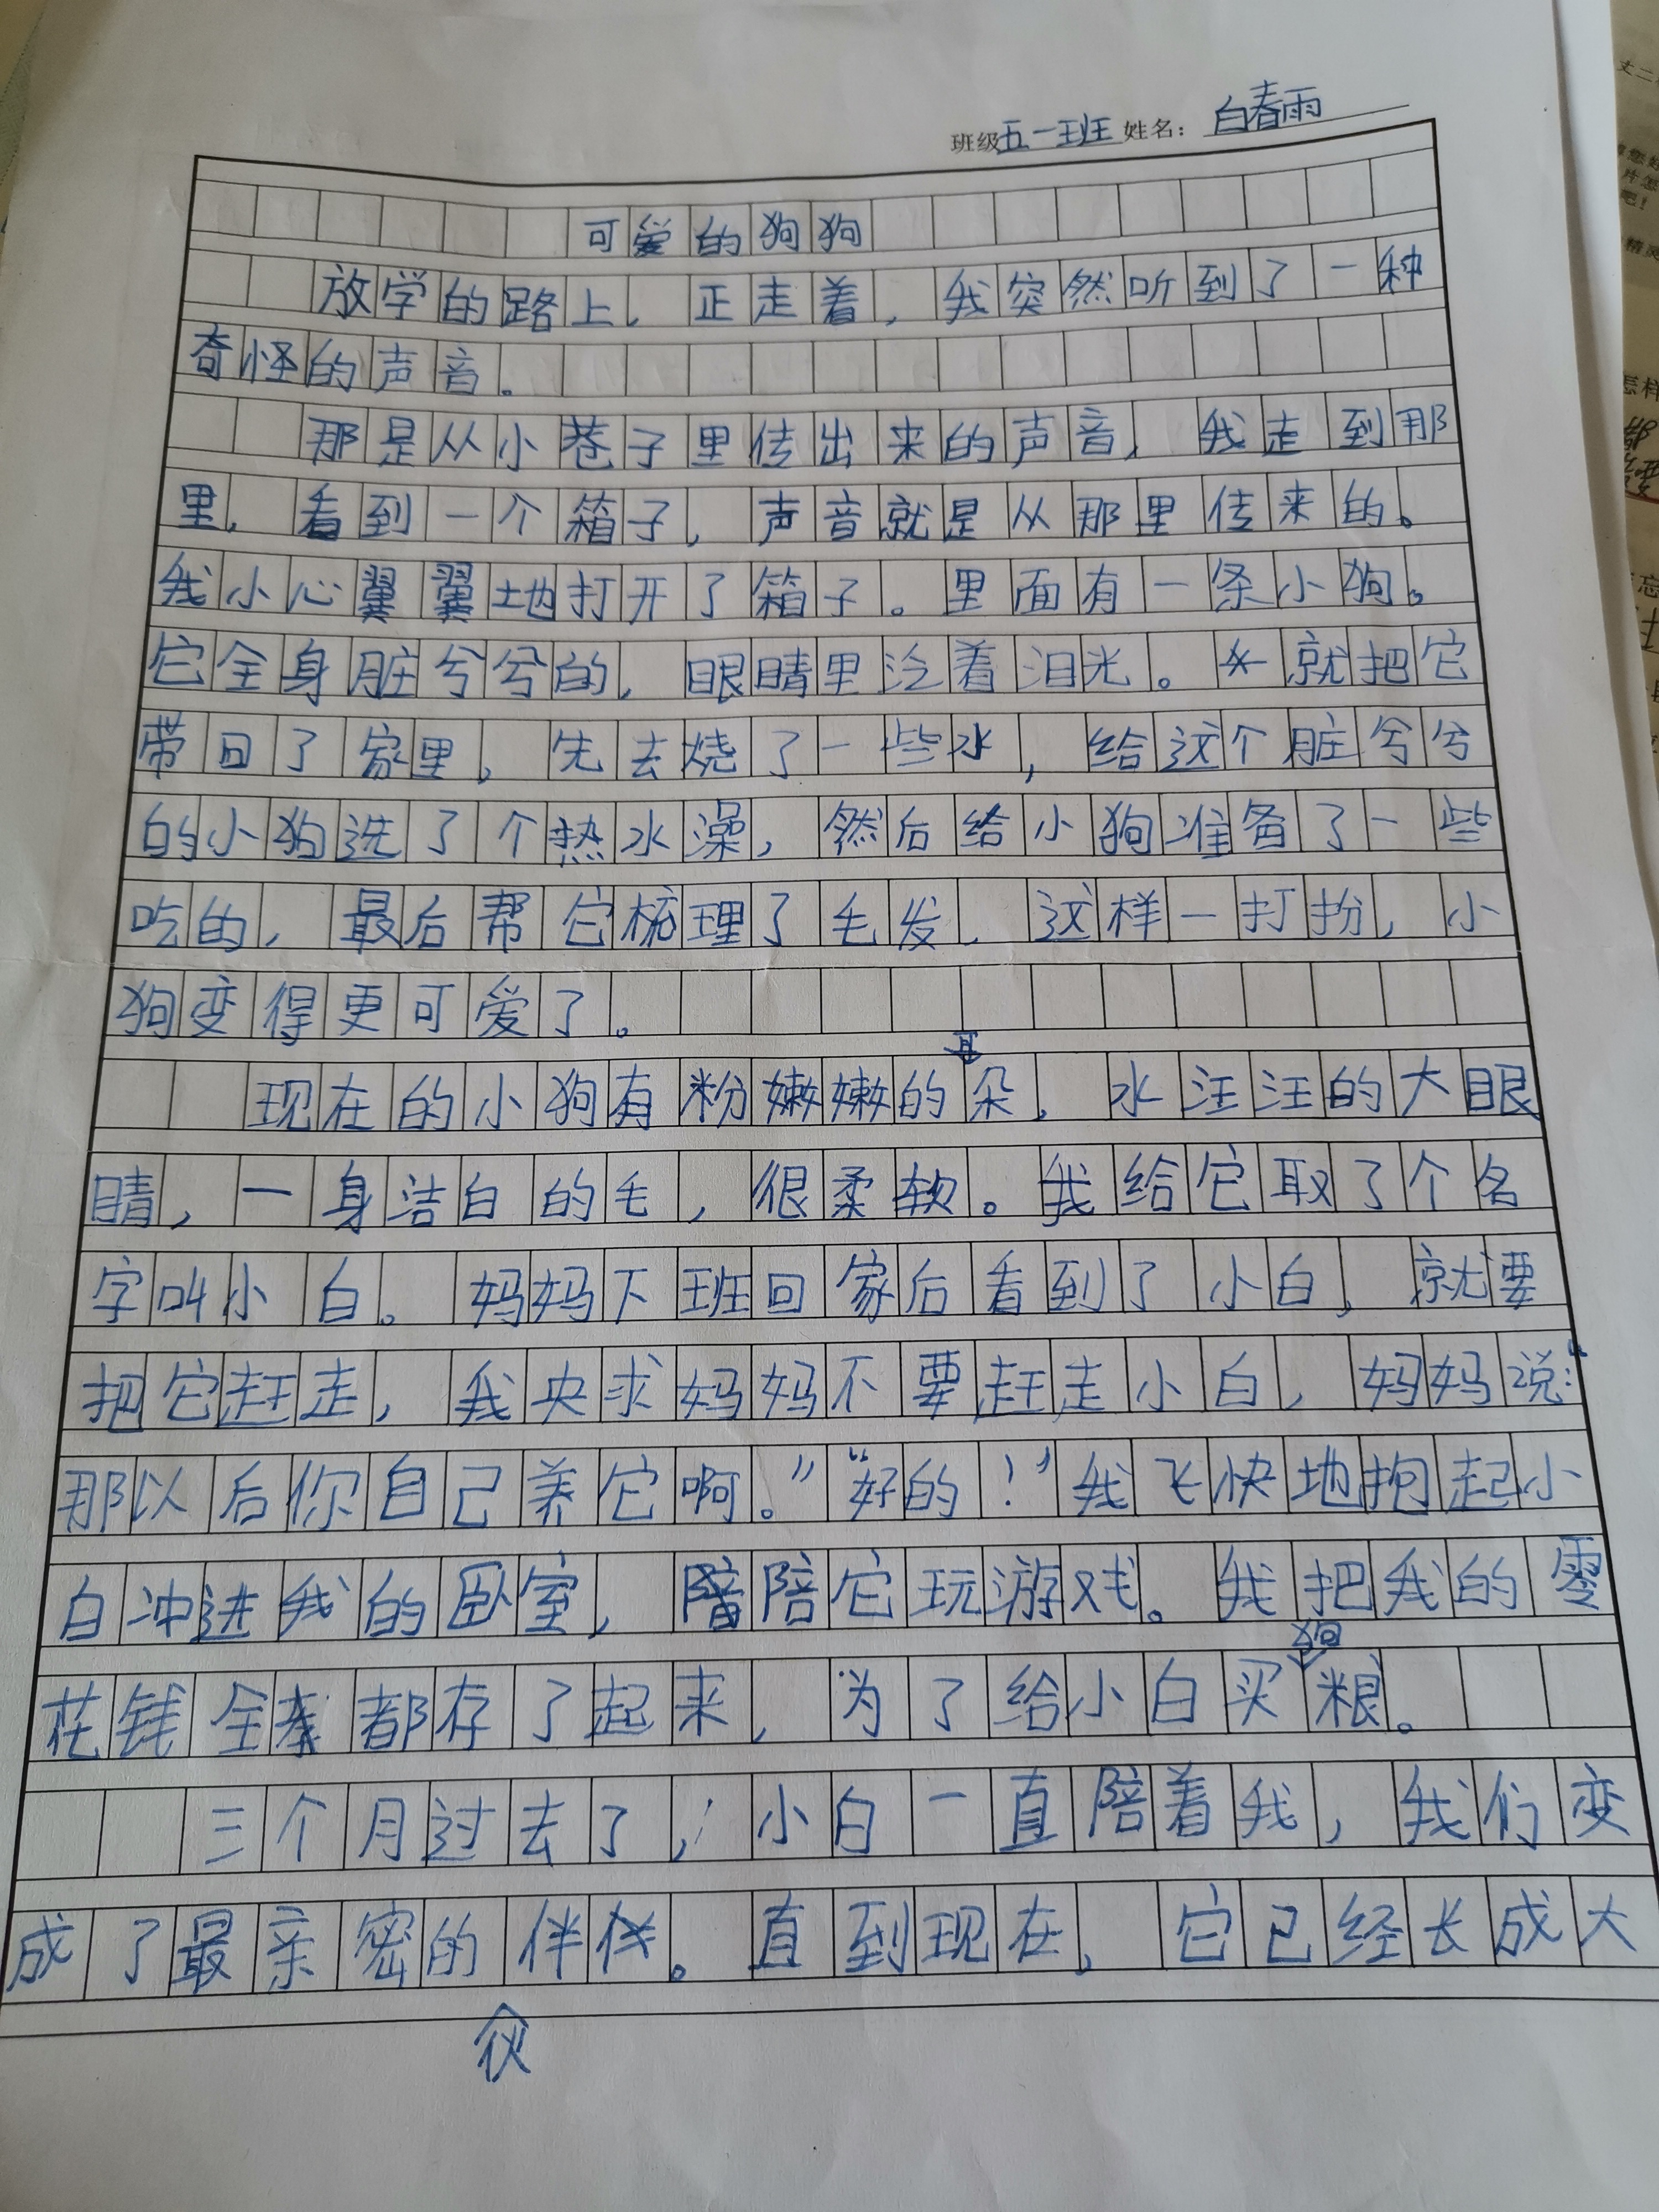 班级五一班 姓名：白春雨
可爱的狗狗
放学的路上，正走着，我突然听到了一种
奇怪的声音。
那是从小巷子里传出来的声音，我走到那
里，看到一个箱子，声音就是从那里传来的。
我小心翼翼地打开了箱子。里面有一条小狗。
它全身脏兮兮的，眼睛里泛着泪光。我就把它
带回了家里，先去烧了一些水，给这个脏兮兮
的小狗洗了个热水澡，然后给小狗准备了一些
吃的，最后帮它梳理了毛发，这样一打扮，小
狗变得更可爱了。
现在的小狗有粉嫩嫩的耳朵，水汪汪的大眼
睛，一身洁白的毛，很柔软。我给它取了个名
字叫小白。妈妈下班回家后看到了小白，就要
把它赶走，我央求妈妈不要赶走小白，妈妈说：“
那以后你自己养它啊。”“好的！”我飞快地抱起小
白冲进我的卧室，陪陪它玩游戏。我把我的零
花钱全都存了起来，为了给小白买狗粮。
三个月过去了，小白一直陪着我，我们变
成了最亲密的伙伴。直到现在，它已经长成大